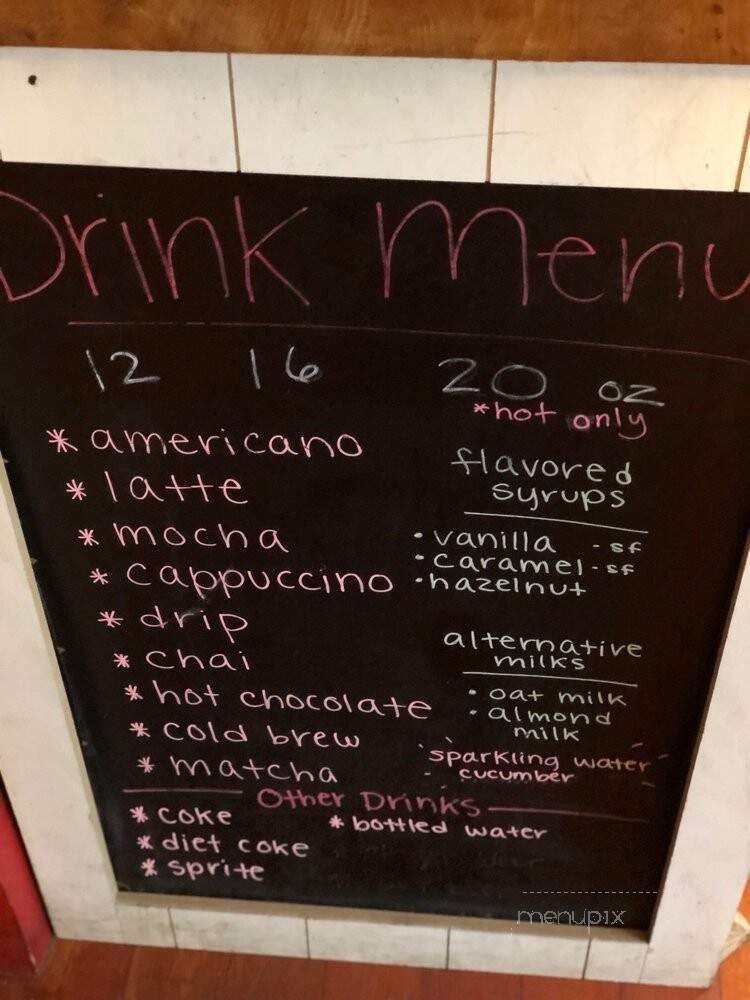 Drink Menu
12 16 20 oz
*hot only
* americano
* latte
* mocha
* cappuccino
* drip
* chai
* hot chocolate
* cold brew
* matcha
flavored
syrups
• vanilla - sf
• caramel - sf
• hazelnut
alternative
milks
• oat milk
• almond
milk
sparkling water
cucumber
Other Drinks
* coke
* diet coke
* sprite
* bottled water
menupix